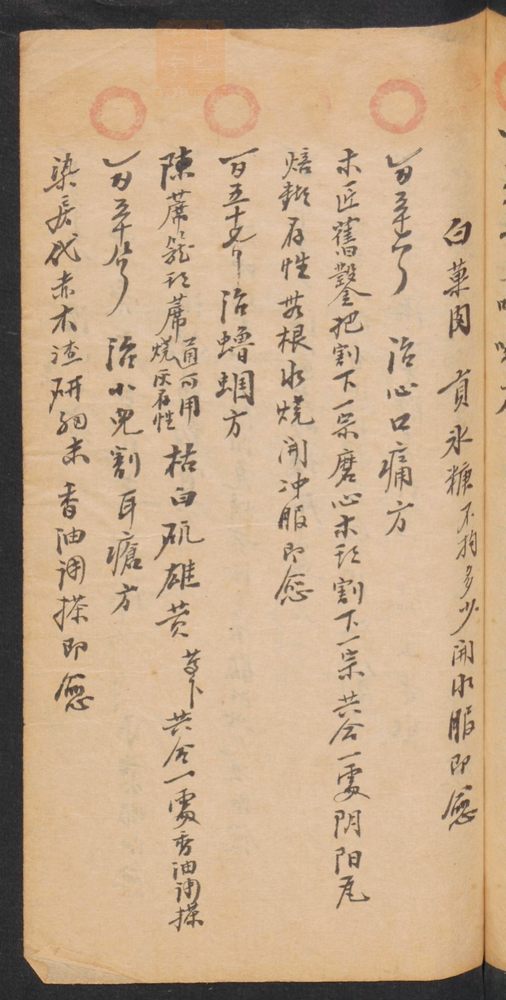 白菓肉 貢氷糖不拘多少開水服即愈
治心口痛方
木匠舊鑿把割下一宗磨心木頭割下一宗共合一處阴阳瓦
焙 存性無根水燒開冲服即愈
一百五十七 治 方
陳蓆 頭蓆通可用燒灰存性枯白矾雄黄 共合一處香油调搽
一百五十八 治小兒割耳瘡方
染房代赤木渣研細末香油调搽即愈